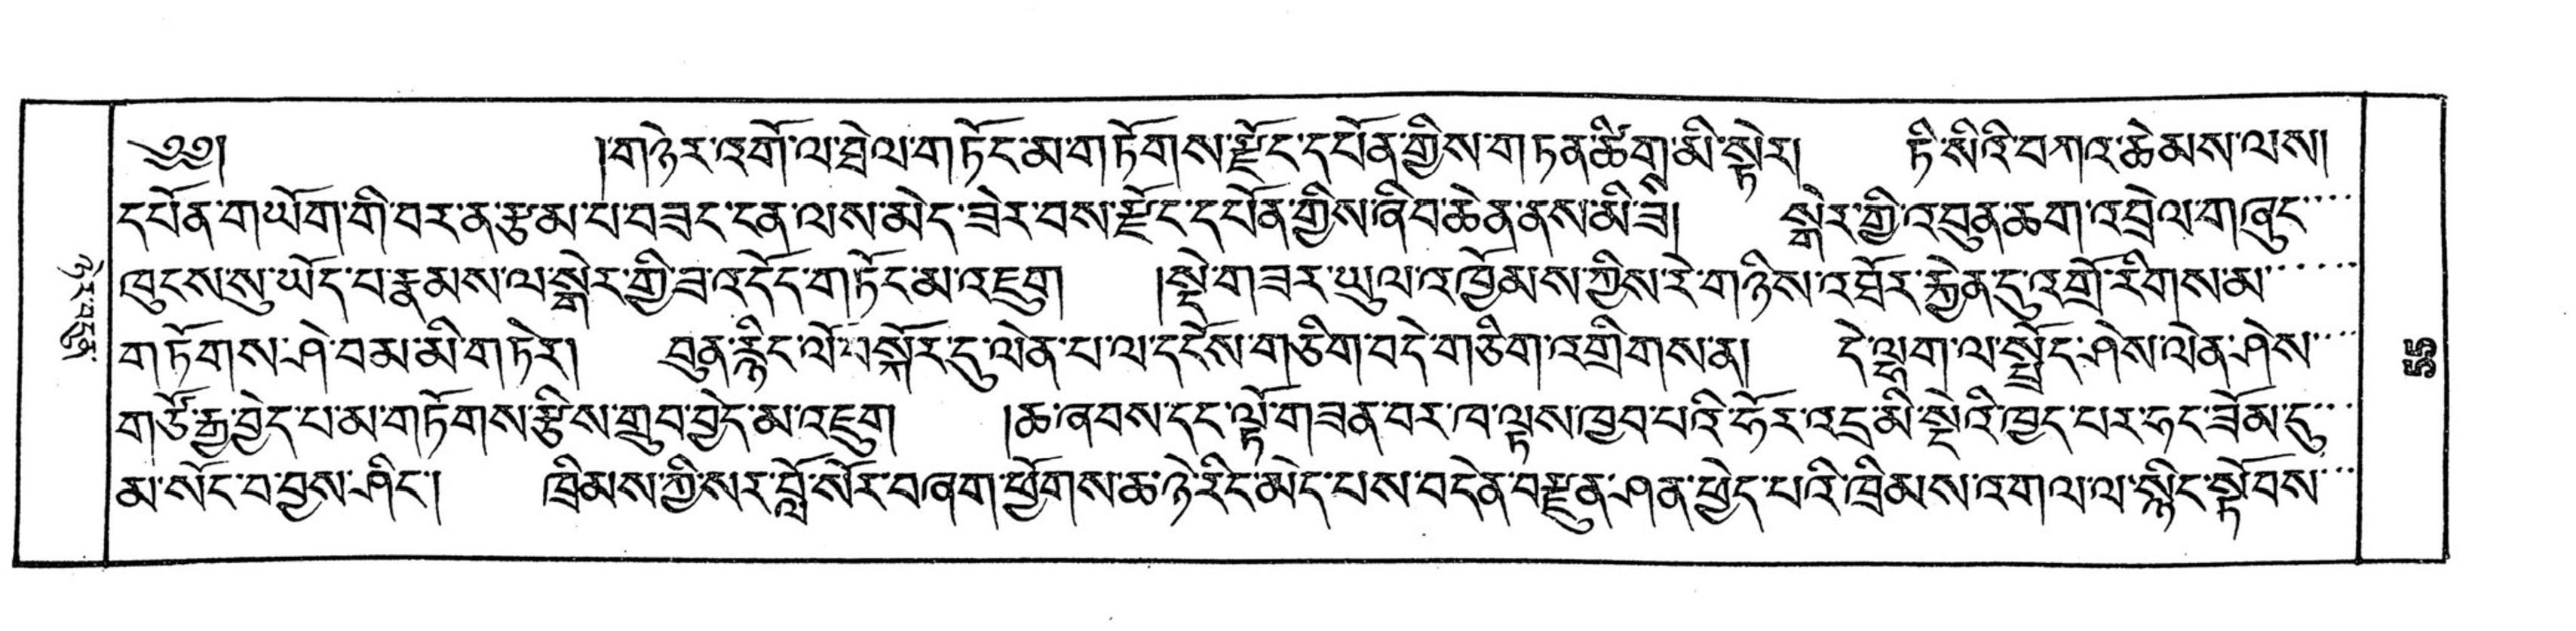 ༄༅། །གཉེར་འགོ་ལ་བྲེལ་གཏོང་མ་གཏོགས་རྫོང་དཔོན་གྱིས་གཏན་ཚིག་མི་སྟེར། ཏི་སིའི་བཀའ་ཆེམས་ལས།
དཔོན་གཡོག་གི་བར་ན་རྩམ་པ་བཟང་ངན་ལས་མེད་ཟེར་བས་རྫོང་དཔོན་གྱིས་ཞིབ་ཆེན་ནས་མི་ཟི། སྒེར་གྱི་འབྲུན་ཆག་འབྲེལ་གཞུང་
ཁུངས་སུ་ཡོད་པ་རྣམས་ལ་སྒེར་གྱི་ཟ་འདོད་གཏོང་མ་འཇུག །སྡེ་གཟར་ཡུལ་འཁྱོམས་ཀྱིས་རེ་གཉིས་འཐོར་རྐྱེན་དུ་འགྲོ་རིགས་མ་
གཏོགས་ཤེ་བམ་མི་གཏེར། བྲུན་རྙིང་ལོ་སྐོར་དུ་ལེན་པ་ལ་དངོས་གཅིག་བདེ་གཅིག་འགྲིགས་ན། དེ་ལྷག་ལ་སྤྲོད་ཤེས་ལེན་ཤེས་
གཙོ་རྒྱ་བྱེད་པ་མ་གཏོགས་རྩིས་གྲུབ་བྱེད་མ་འཇུག །ཆ་ཞབས་དང་ལྟོ་གཟན་བར་ཁ་ལྟས་ཁྱབ་པའི་ཧོར་འདྲ་མི་སྡེའི་ཁྱད་པར་ཧང་ཟོམ་དུ་
མ་སོང་བ་བྱས་ཤིང་། ཁྲིམས་ཀྱི་སར་བློ་སོར་བཞག་ཕྱོགས་ཆ་ཉེ་རིང་མེད་པས་བདེན་བརྫུན་ཤན་ཕྱེད་པའི་ཁྲིམས་འགལ་ལ་སྙིང་སྟོབས་